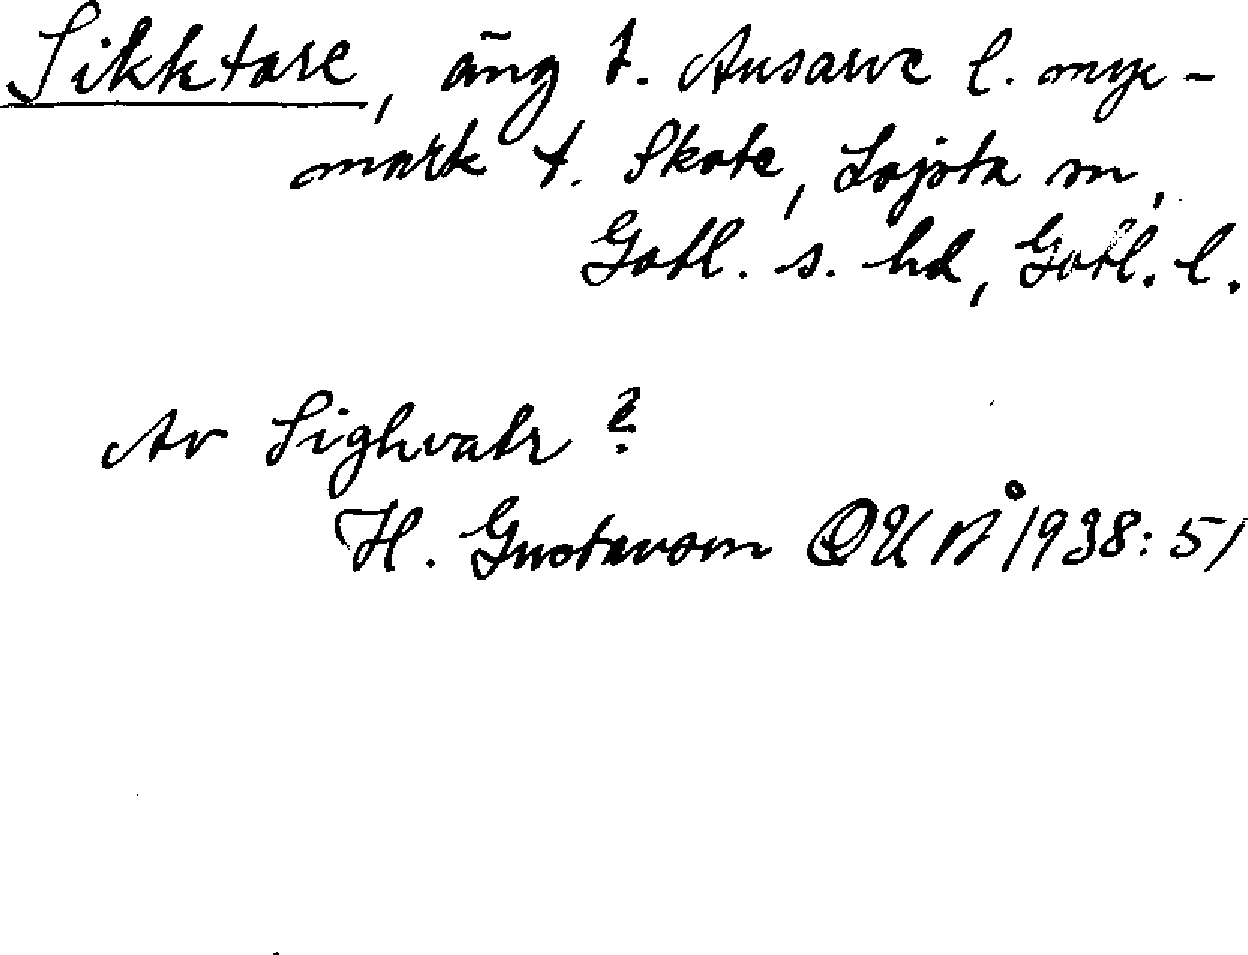 Sikktare, äng t. Ausarve l. myr-
mark t. Skote, Lojsta sn,
Gotl. s. hd, Gotl. l.
Av Sighvatr?
H. Gustavson OUÅ 1938: 51